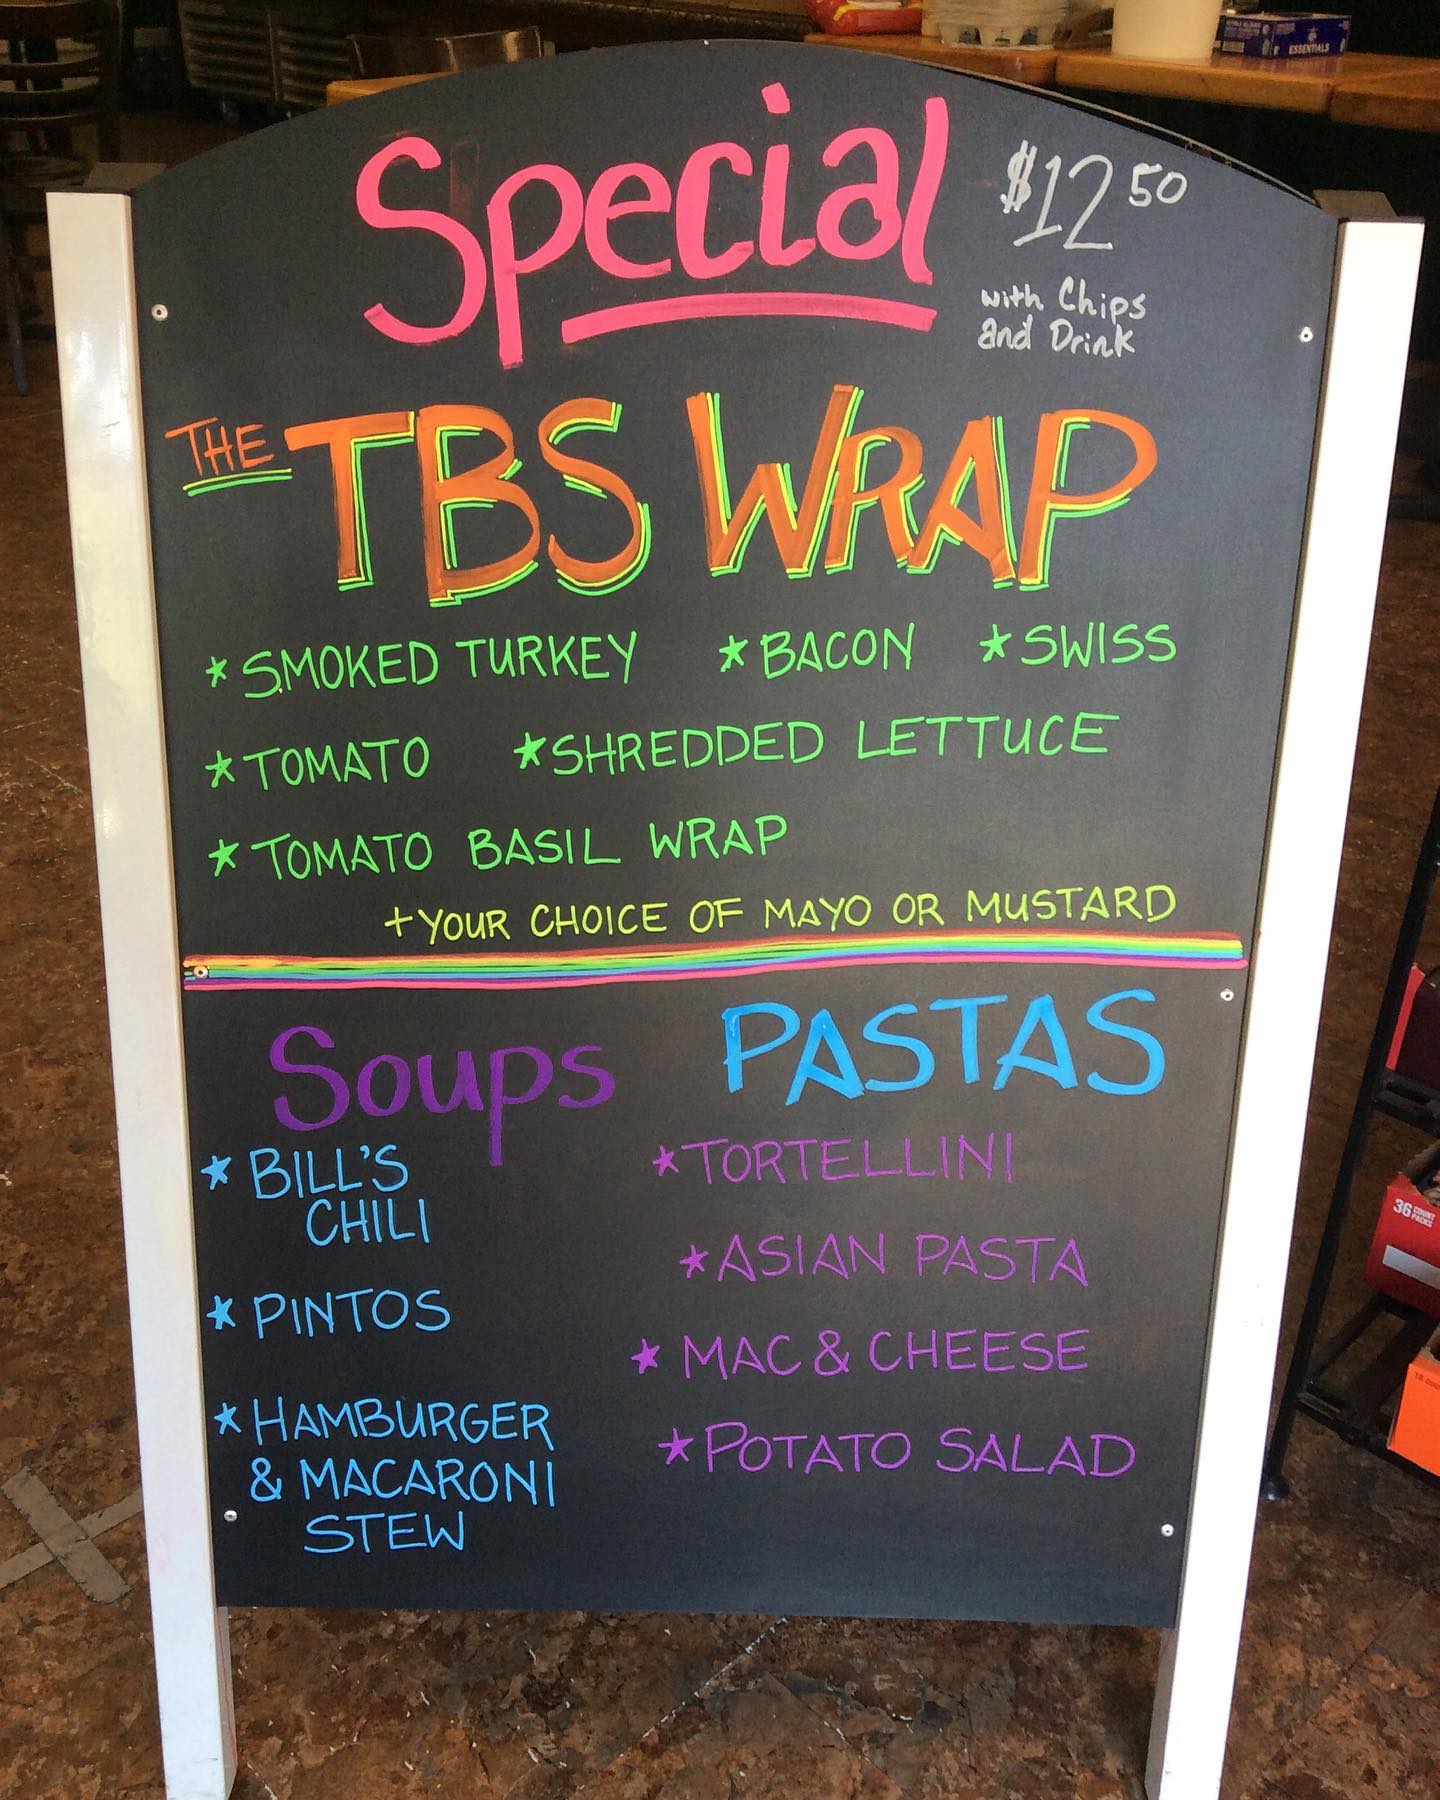 ESSENTIALS
Special
$12 50
with Chips
and Drink
THE TBS WRAP
*SMOKED TURKEY *BACON *SWISS
*TOMATO *SHREDDED LETTUCE
*TOMATO BASIL WRAP
+YOUR CHOICE OF MAYO OR MUSTARD
Soups
*BILL'S
CHILI
*PINTOS
*HAMBURGER
& MACARONI
STEW
PASTAS
*TORTELLINI
*ASIAN PASTA
*MAC & CHEESE
*POTATO SALAD
36 COUNT
PACKS